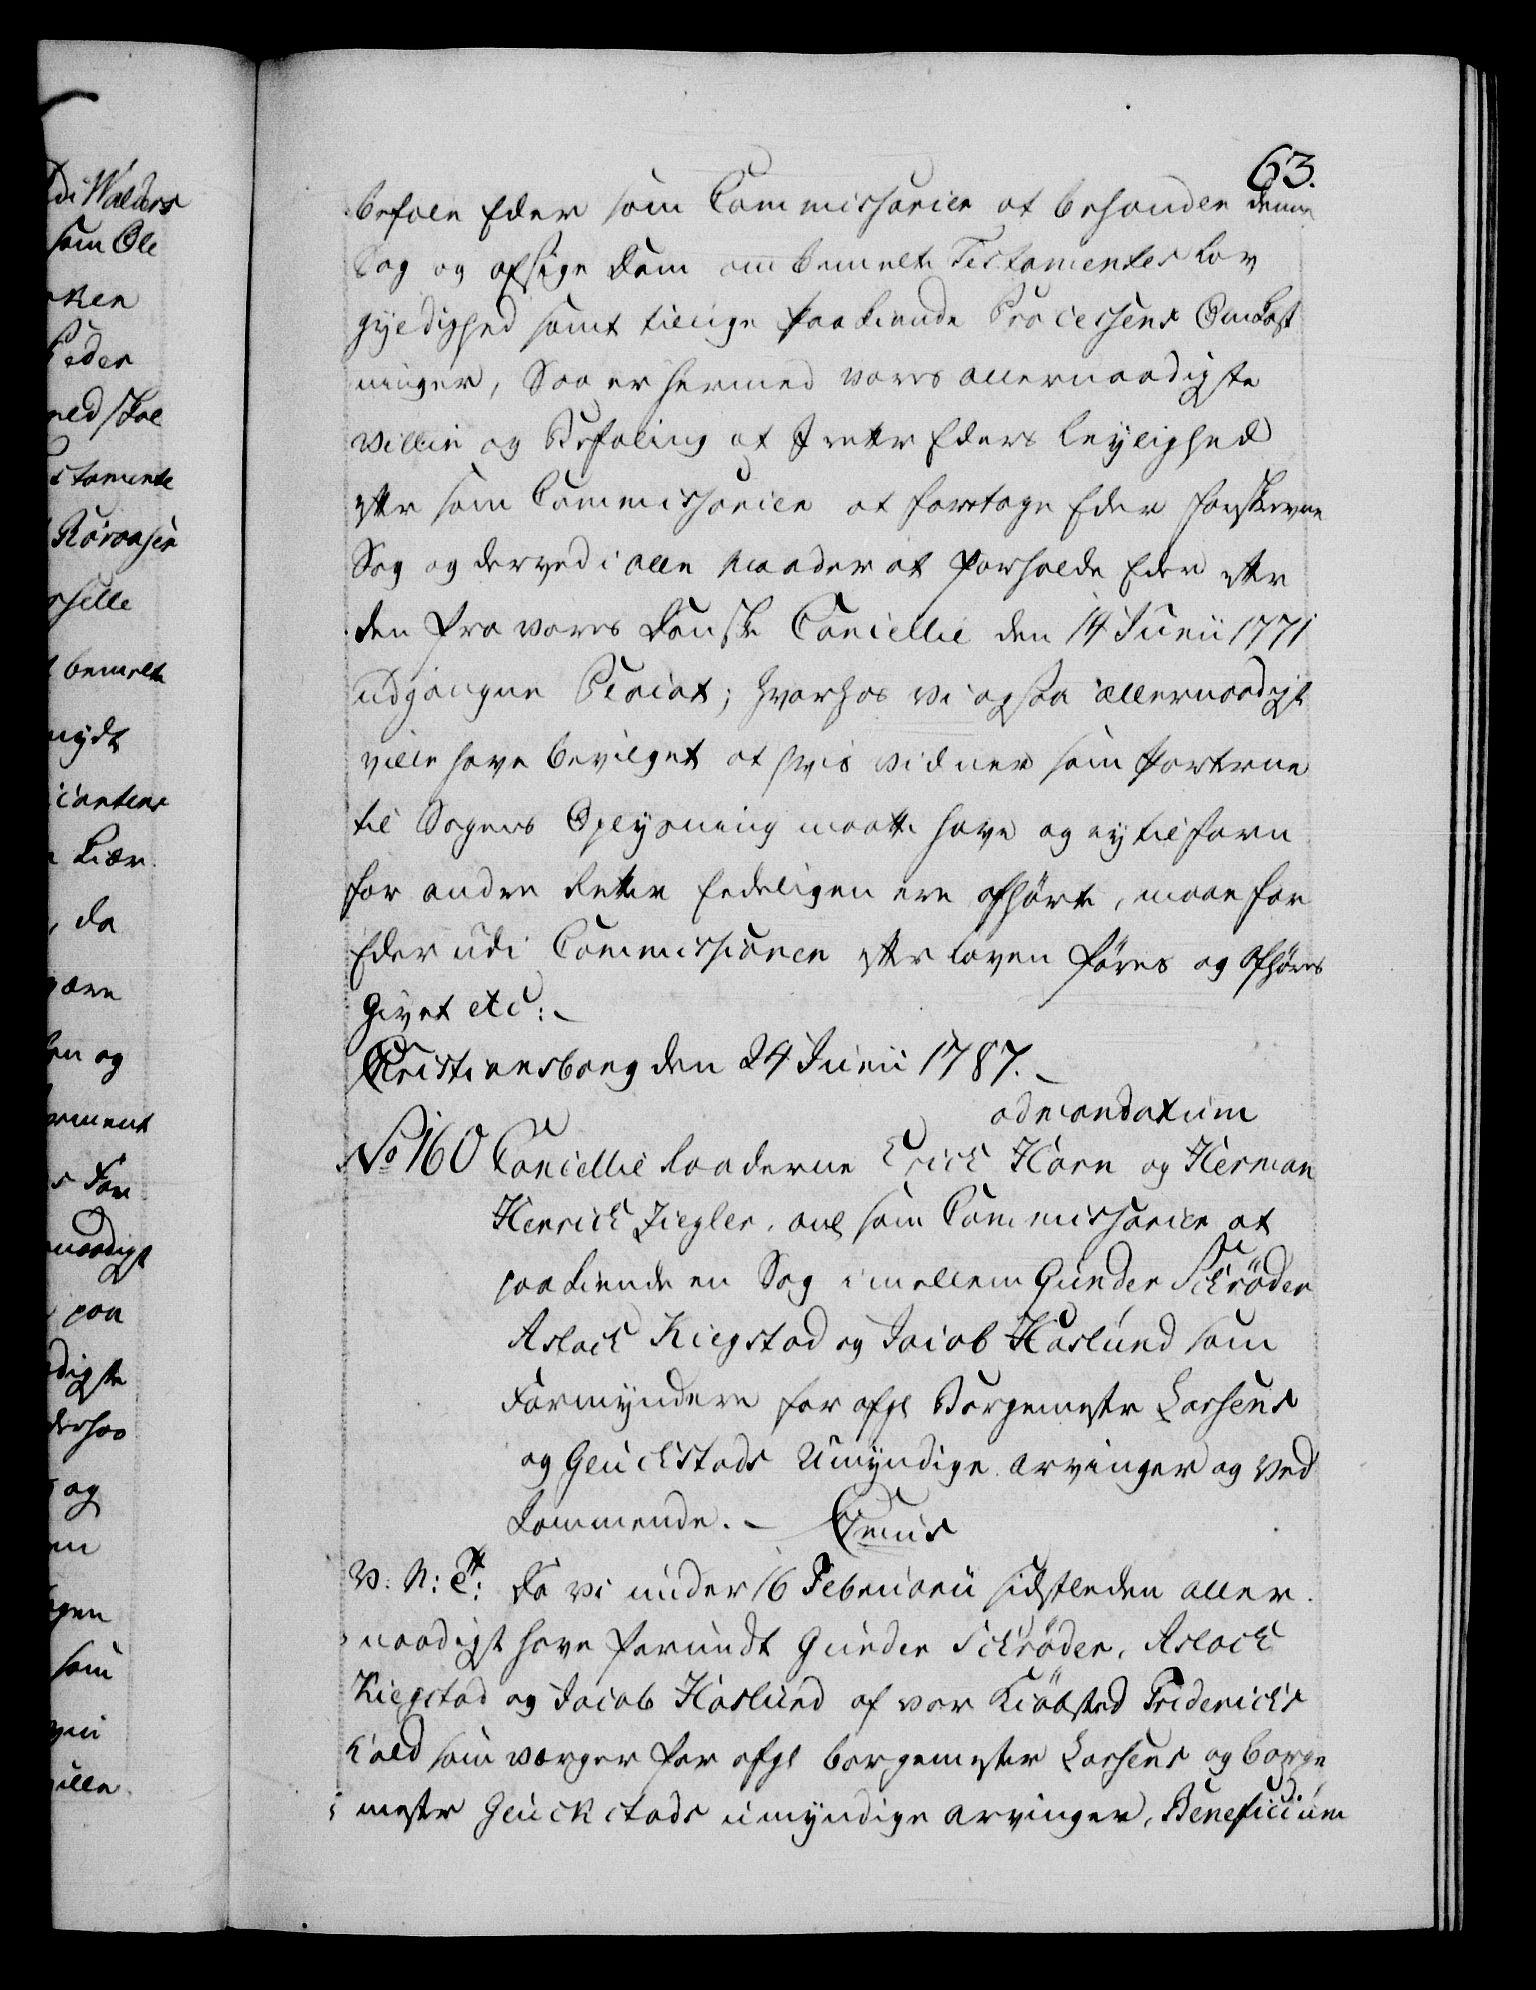 63.
befale Eder som Commissarier at behandle denne
Sag og afsige Dom om bemelte Testamentes Lov
gyldighed samt tillige paakiende Processens Omkost
ninger, Saa er hermed vores allernaadigste
Villie og Befaling at I efter Eders leylighed
efter som Commissarier at foretage Eder forskrevne
Sag og derved i alle Maader at forholde Eder efter
den fra vores Danske Cancellie den 14 Junii 1771
udgangne Placat; hvorhos vi ogsaa allernaadigst
ville have bevilget at hvis vidner som Parterne
til Sagens Oplysning maatte have og ey tilforn
for andre Retter Eedeligen ere afhørte, maae for
Eder udi Commissionen efter loven føres og afhøres
Givet etc:
Christiansborg den 24 Junii 1787.
ad mandatum
No 160 Cancellie Raaderne Erich Horn og Herman
Henrich Ziegler, anl som Commissarier at
paakiende en Sag imellem Gunder Schrøder
Aslach Kiegstad og Jacob Haslund som
Formyndere for afgl Borgemester Larsens
og Gluckstads Umyndige Arvinger og Ved
kommende. Qvæmis
V: A: E: Da vi under 16 Februarii sidstleden aller
naadigst have forundt Gunder Schrøder, Aslach
Kiegstad og Jacob Haslund af vor Kiøbsted Friderichs
hald som værger for afgl borgemester Larsens og borge
mester Gluckstads umyndige Arvinger, Beneficium
di Walders
som Ole
Peder
da
og
som